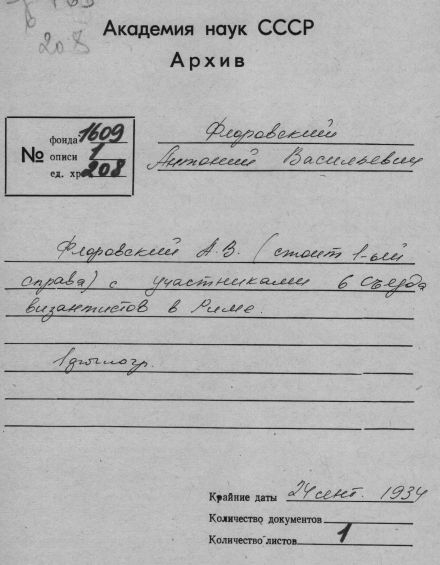 208
Академия наук СССР
Архив
№ фонда 1609
описи 1
ед. хр. 208
Флоровский
Антоний Васильевич
Флоровский А.В. (стоит 1-ый
справа) с участниками 6 съезда
византистов в Риме.
Крайние даты 24 сент. 1934
Количество документов
Количество листов 1